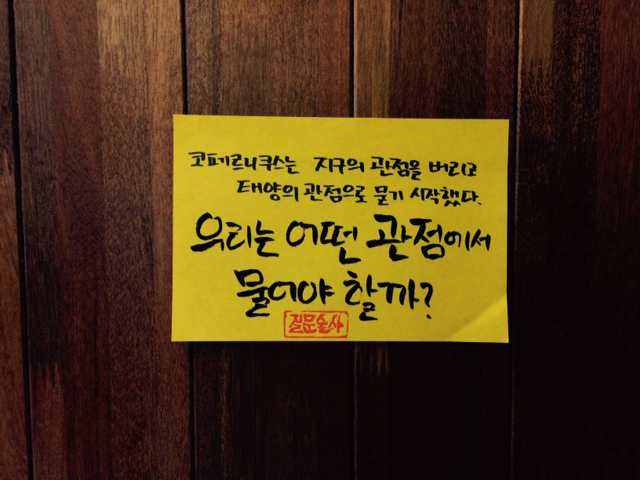 코페르니쿠스는 지구의 관점을 버리고
태양의 관점으로 묻기 시작했다.
우리는 어떤 관점에서
물어야 할까?
질문술사